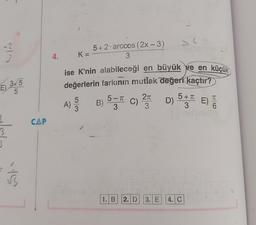 4.
K = 5 + 2 · arccos (2x – 3) / 3
ise K'nin alabileceği en büyük ve en küçük
değerlerin farkının mutlak değeri kaçtır?
A) 5/3 B) 5 – π/3 C) 2π/3 D) 5 + π/3 E) π/6
E) 3√5/5
CAP
1. B 2. D 3. E 4. C